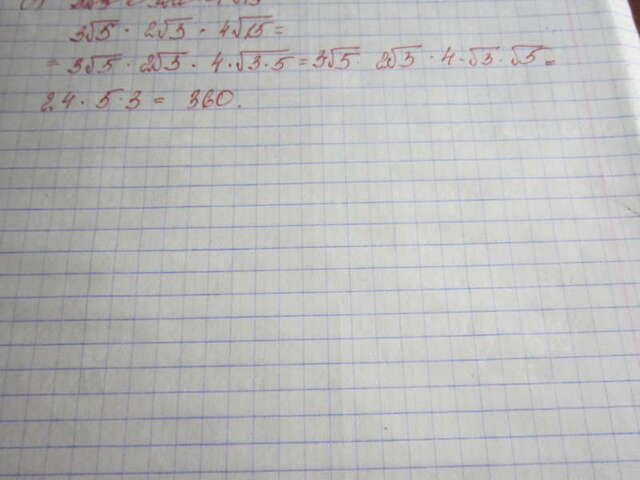 3√5 · 2√3 · 4√15 =
= 3√5 · 2√3 · 4·√3·5 = 3√5 · 2√3 · 4·√3·√5 =
24 · 5·3 = 360.